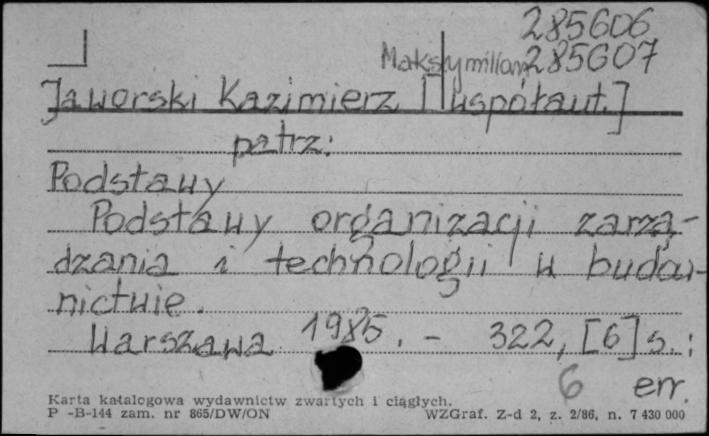 285606
Maksymilian 285607
Jaworski Kazimierz [współaut.]
patrz:
Podstawy
Podstawy organizacji zarzą-
dzania i technologii w budow-
nictwie.
Warszawa 1985. - 322, [6] s. :
6 err.
Karta katalogowa wydawnictw zwartych i ciągłych.
P -B-144 zam. nr 865/DW/ON WZGraf. Z-d 2, z. 2/86, n. 7 430 000